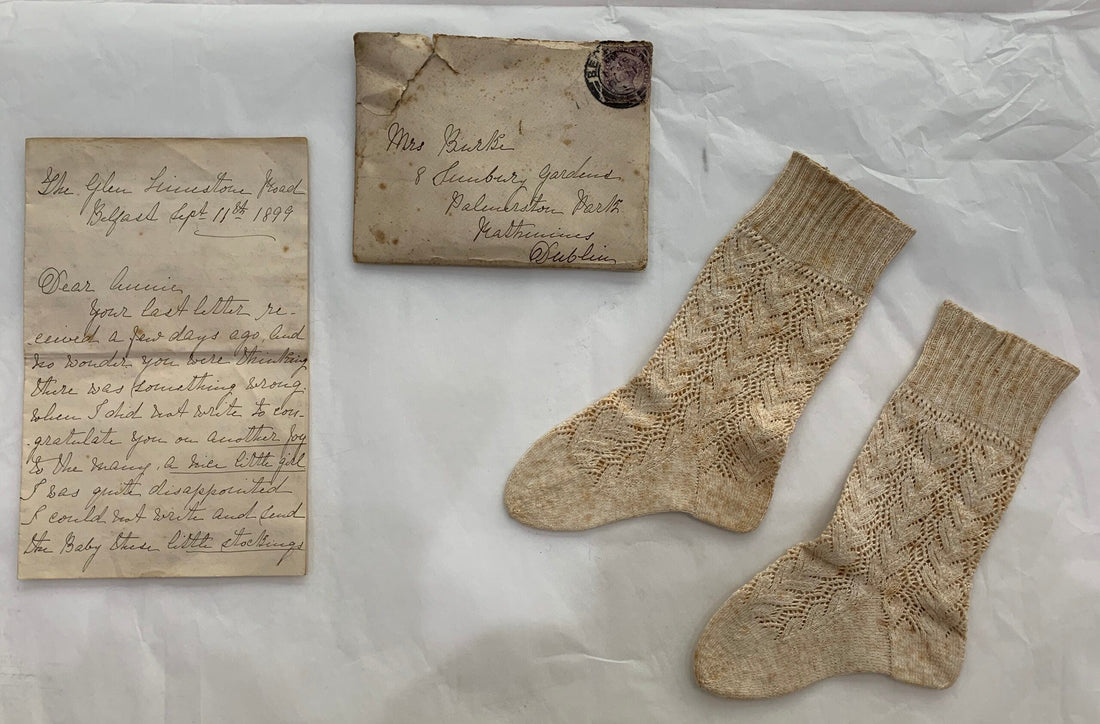 The Glen Limestone Road
Belfast Sept 11th 1899
Dear Annie
Your last letter re-
ceived a few days ago, and
no wonder you were thinking
there was something wrong.
when I did not write to con-
gratulate you on another joy
to the many, a nice little girl
I was quite disappointed
I could not write and send
the Baby these little stockings
Mrs Burke
8 Sunbury Gardens
Palmerston Park
Rathmines
Dublin
BE